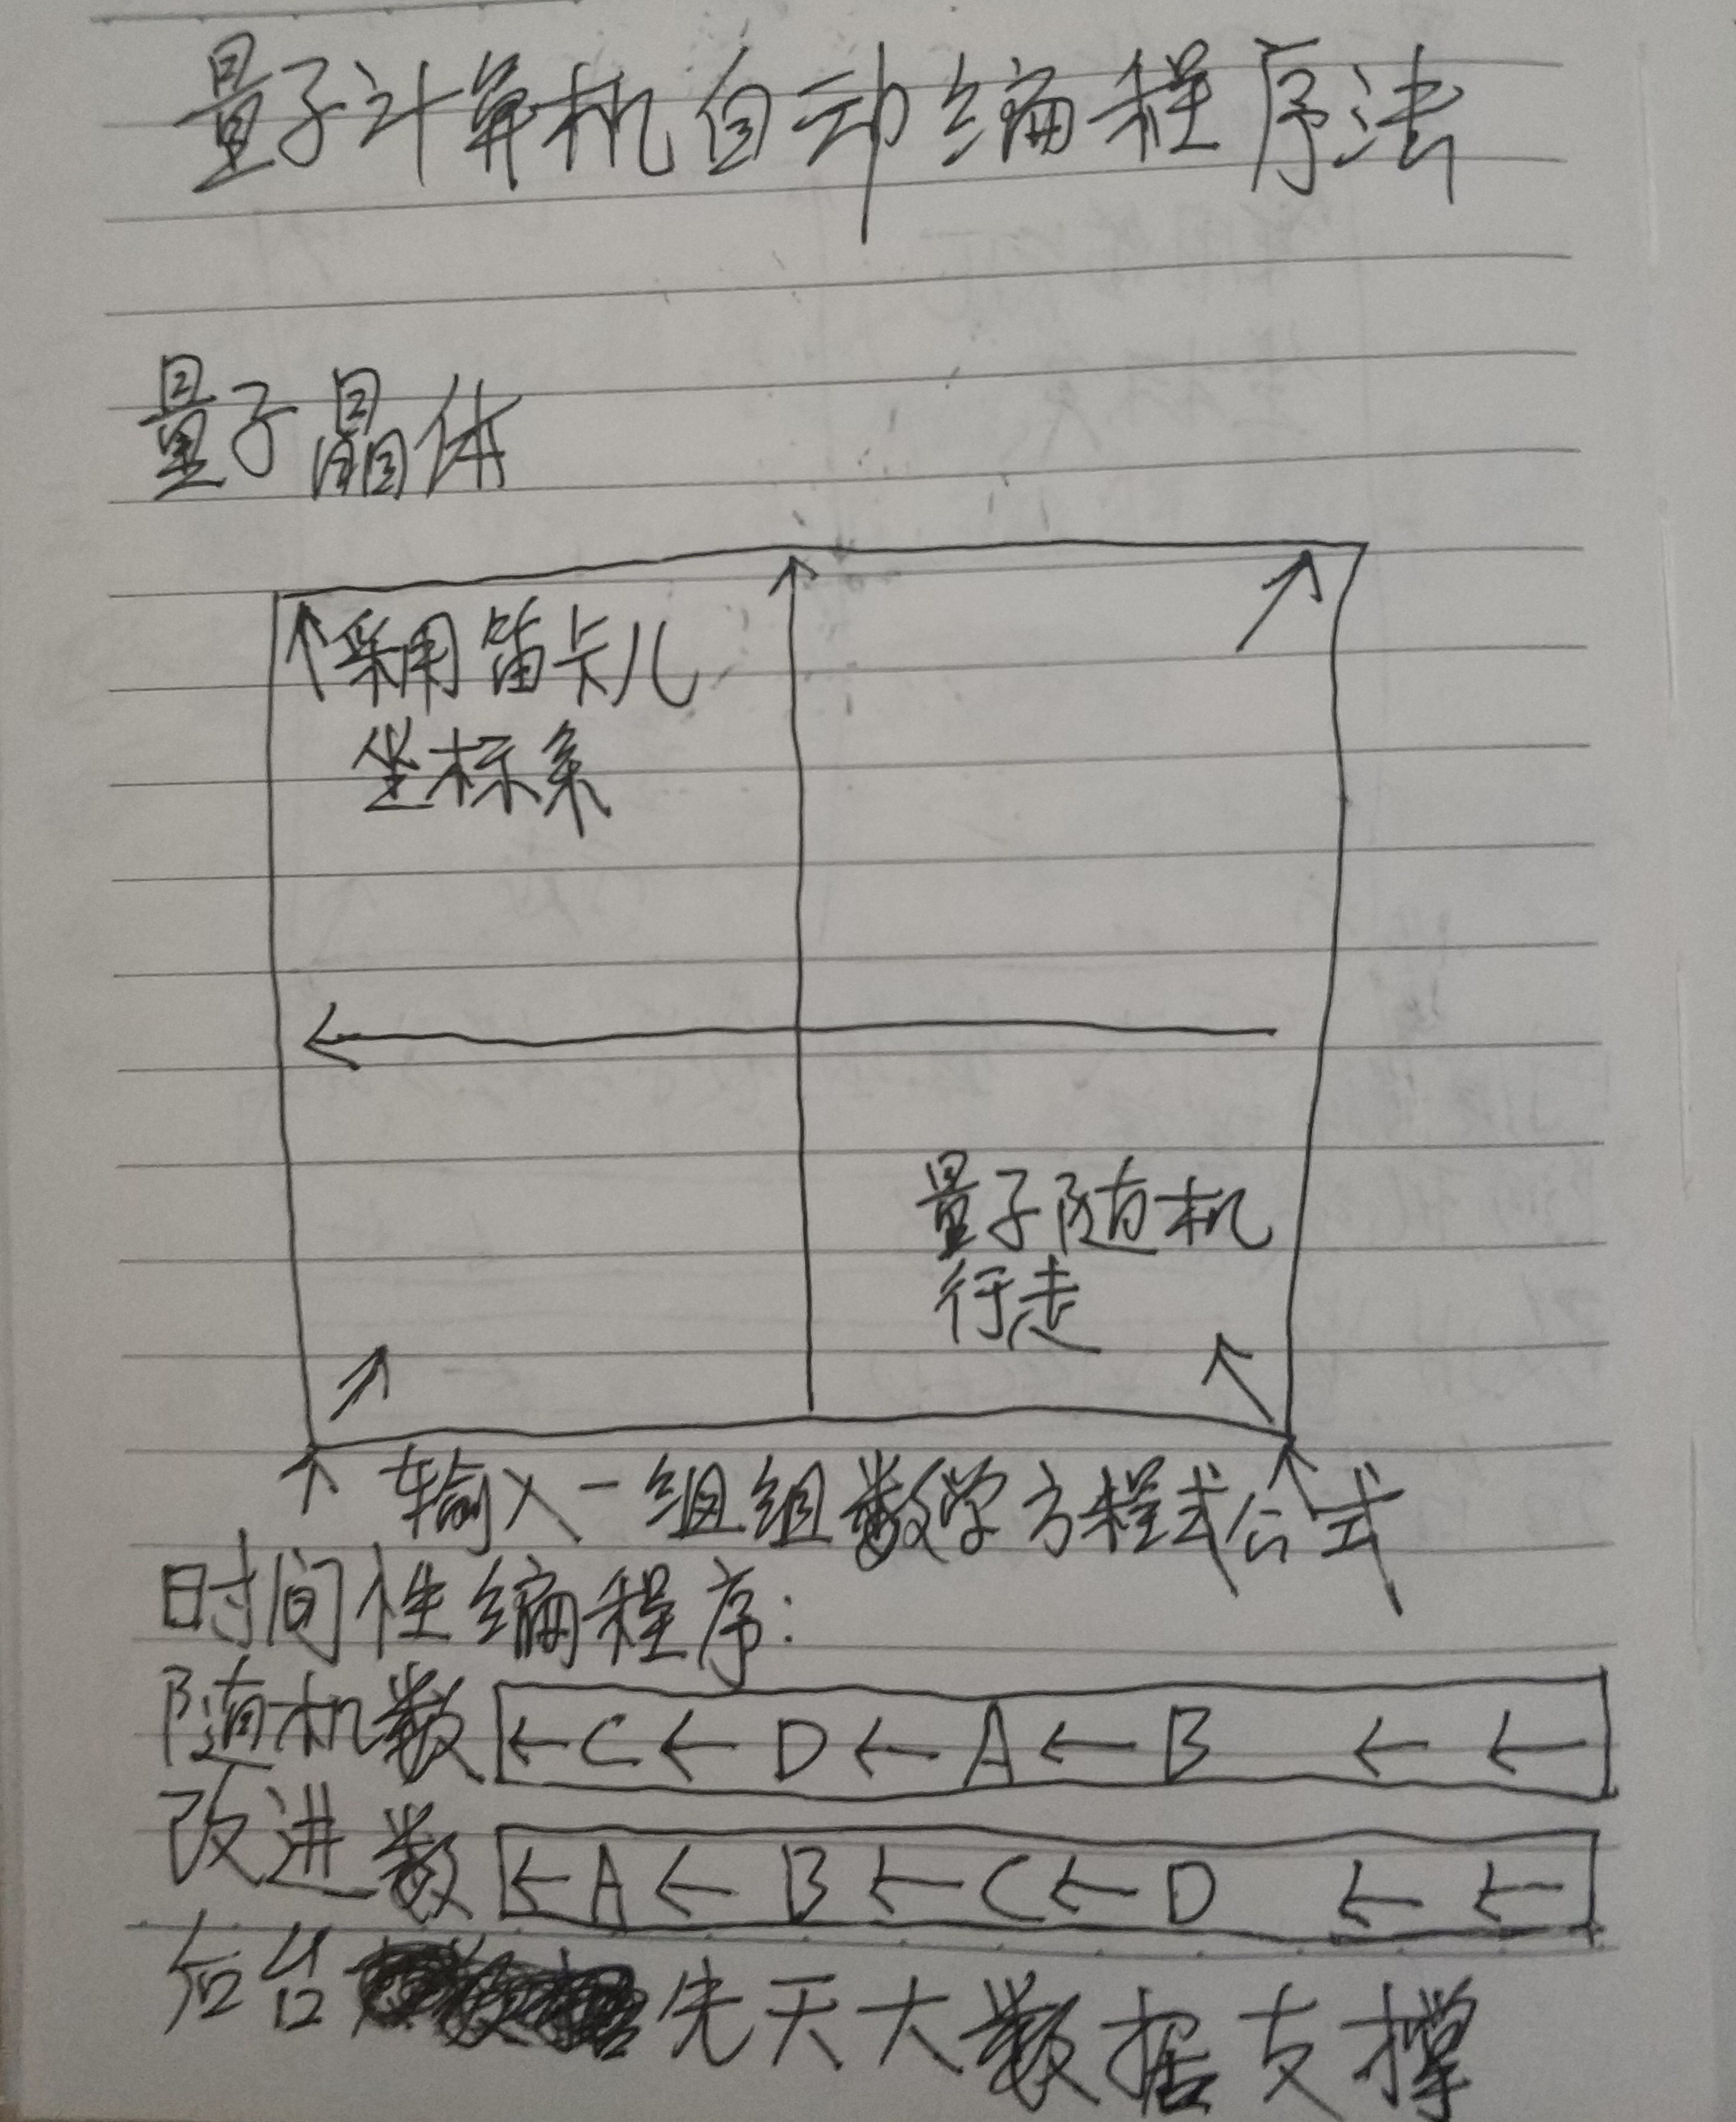 量子计算机自动编程序法
量子晶体
采用笛卡儿
坐标系
量子随机
行走
输入一组组数学方程式公式
时间性编程序:
随机数 ←C← D ←A ← B ← ←
改进数 ←A← B ←C← D ← ←
后台先天大数据支撑